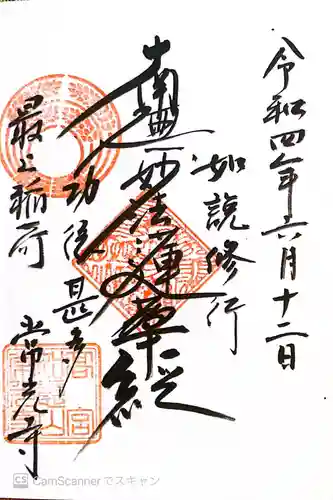 令和四年六月十二日
如説修行
南無妙法蓮華経
功徳甚多
最上稲荷
常光寺
CS CamScannerでスキャン